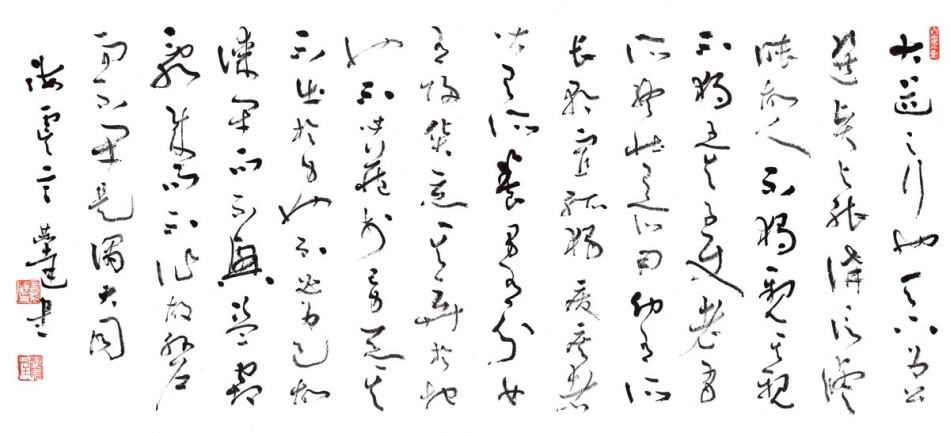 大道之行也天下為公
選賢與能講信修
睦故人不獨親其親
不獨子其子使老有
所終壯有所用幼有所
長矜寡孤獨廢疾者
皆有所養男有分女
有歸貨惡其棄於地
也不必藏於己力惡其
不出於身也不必為己故
謀閉而不興盜竊
亂賊而不作故外戶
而不閉是謂大同
書